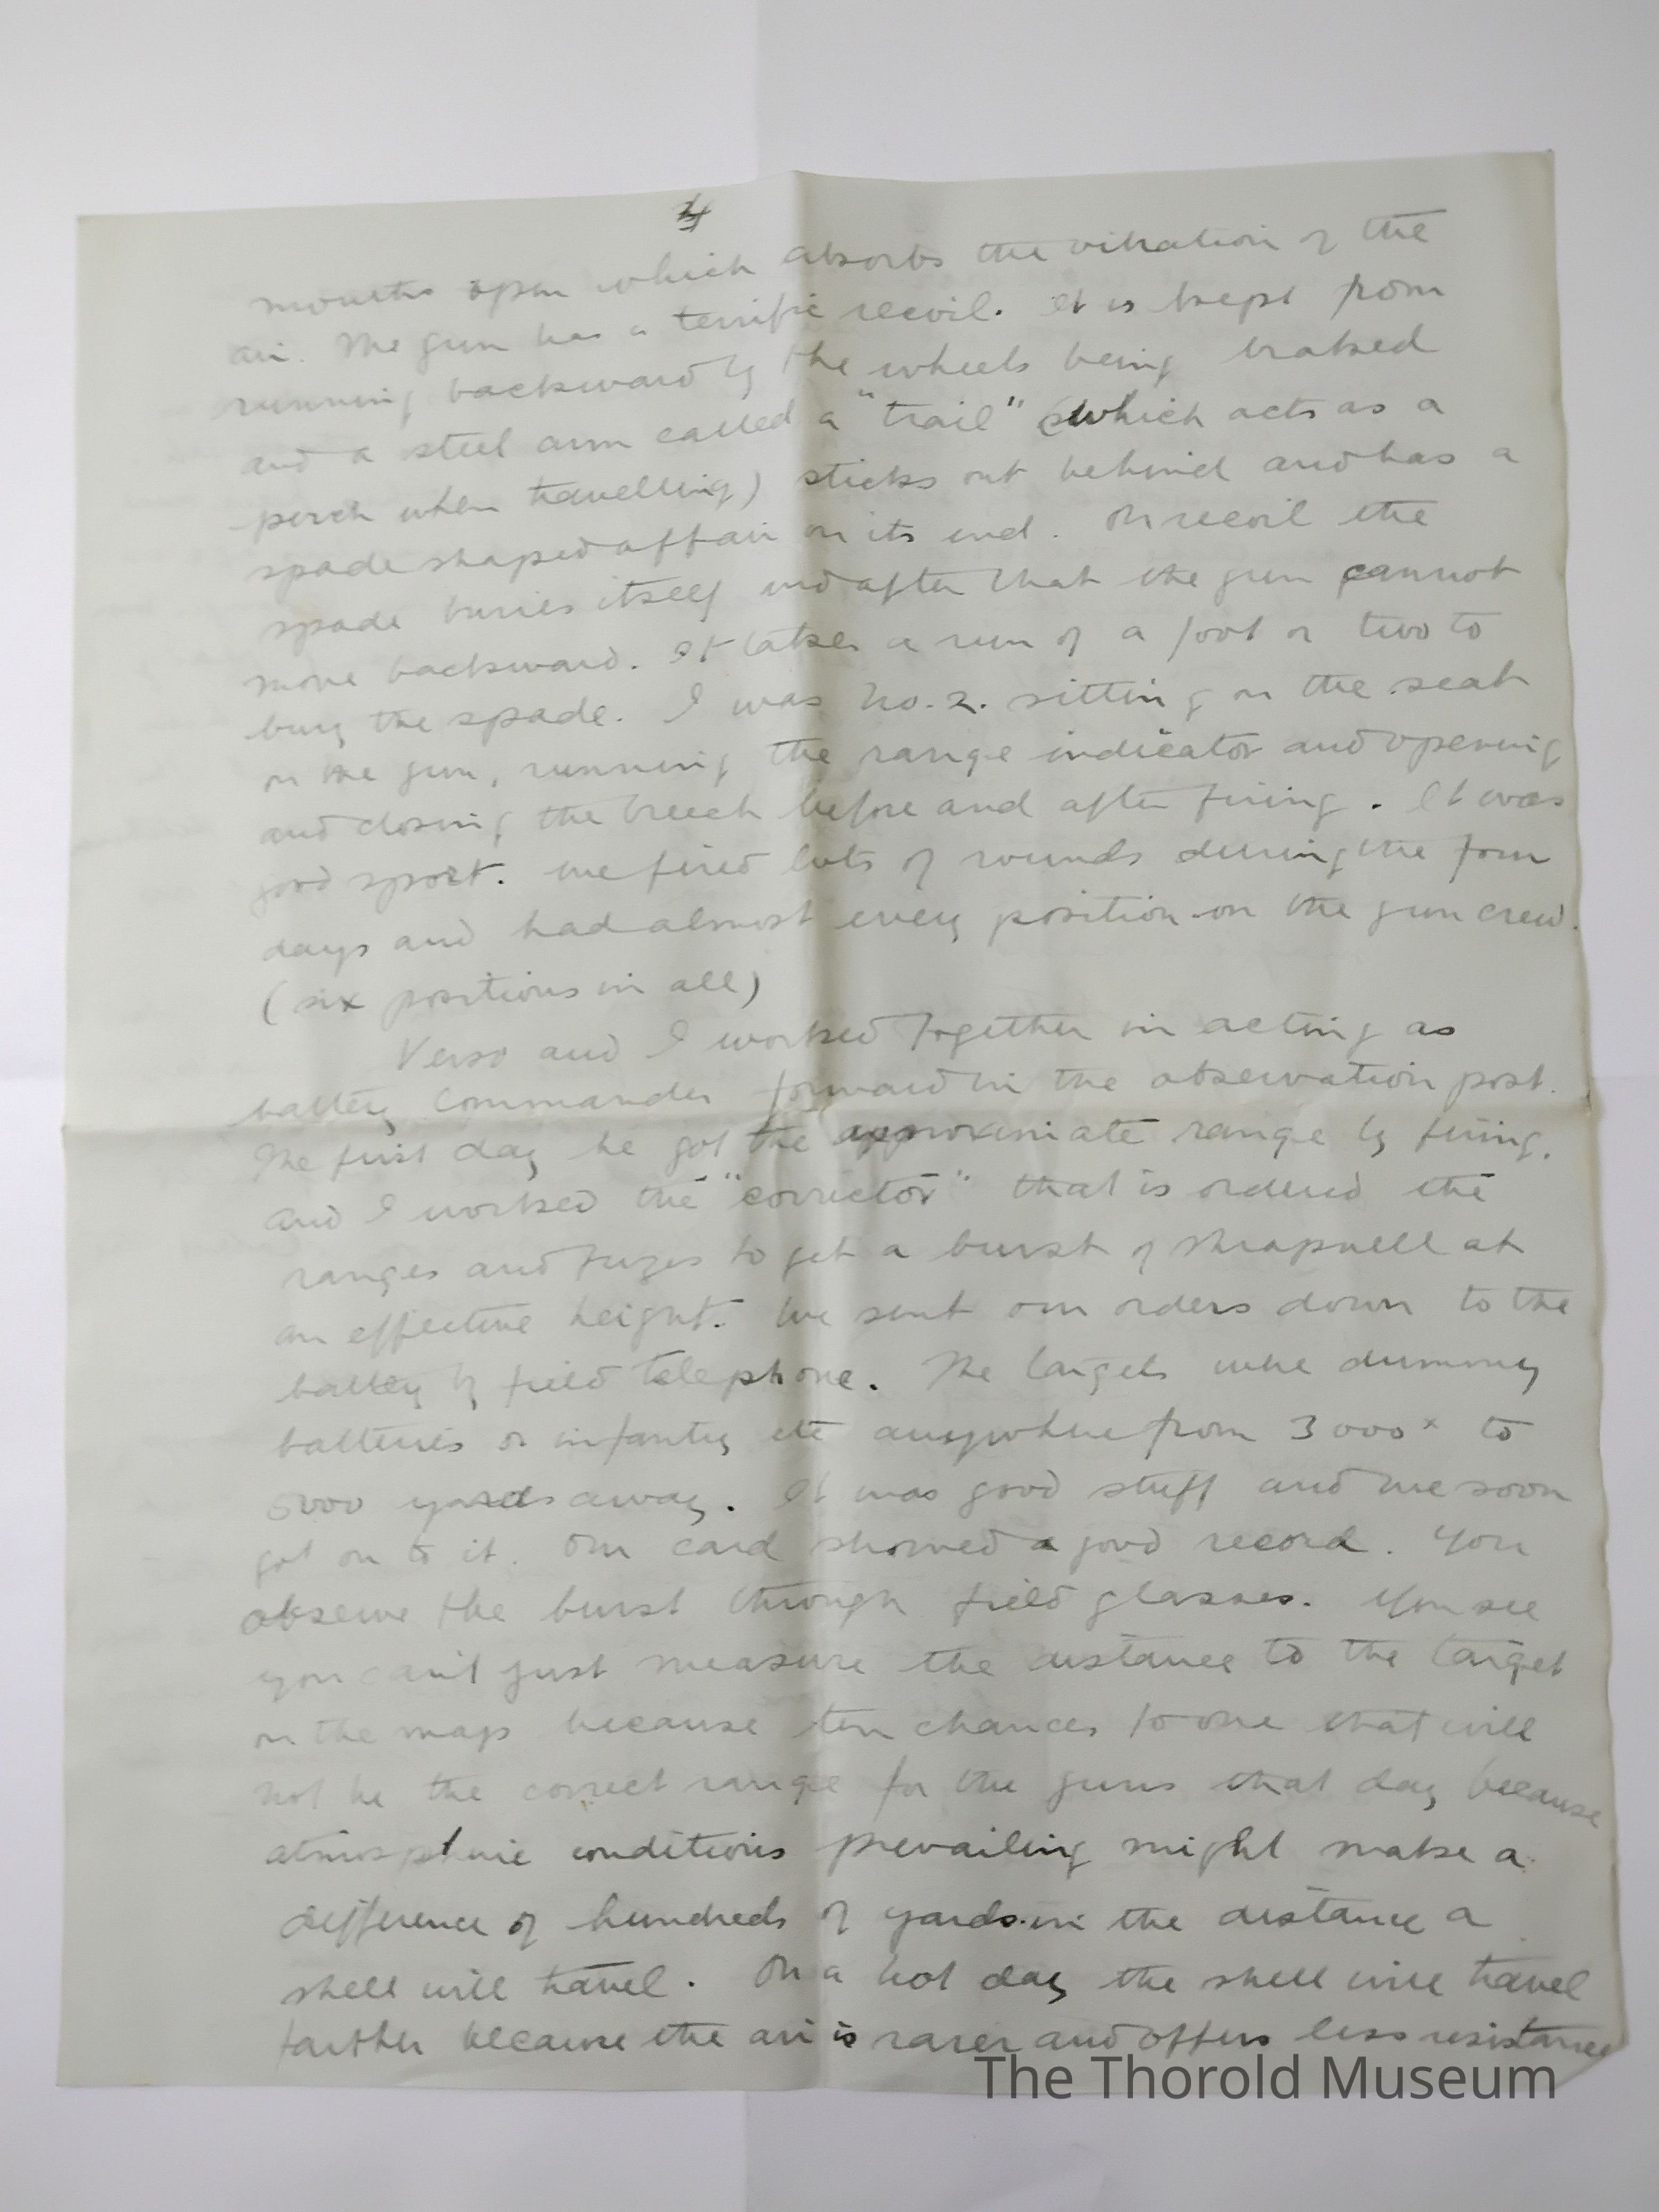 4
mouths open which absorbs the vibration of the
air. The gun has a terrific recoil. It is kept from
running backward by the wheels being braked
and a steel arm called a "trail" (which acts as a
perch when travelling) sticks out behind and has a
spade shaped affair on its end. On recoil the
spade buries itself and after that the gun cannot
move backward. It takes a run of a foot or two to
bury the spade. I was No. 2. sitting on the seat
on the gun, running the range indicator and opening
and closing the breech before and after firing. It was
good sport. We fired lots of rounds during the four
days and had almost every position on the gun crew.
(six positions in all)
Verso and I worked together in acting as
battery commander forward in the observation post.
The first day he got the approximate range by firing.
and I worked the "corrector" that is ordered the
ranges and fuzes to get a burst of shrapnell at
an effective height. We sent our orders down to the
battery by field telephone. The targets were dummy
batteries or infantry etc anywhere from 3000x to
5000 yards away. It was good stuff and we soon
got on to it. Our card showed a good record. You
observe the burst through field glasses. You see
you can't just measure the distance to the target
on the map because ten chances to one that will
not be the correct range for the guns that day because
atmospheric conditions prevailing might make a
difference of hundreds of yards in the distance a
shell will travel. On a hot day the shell will travel
farther because the air is rarer and offers less resistance
The Thorold Museum